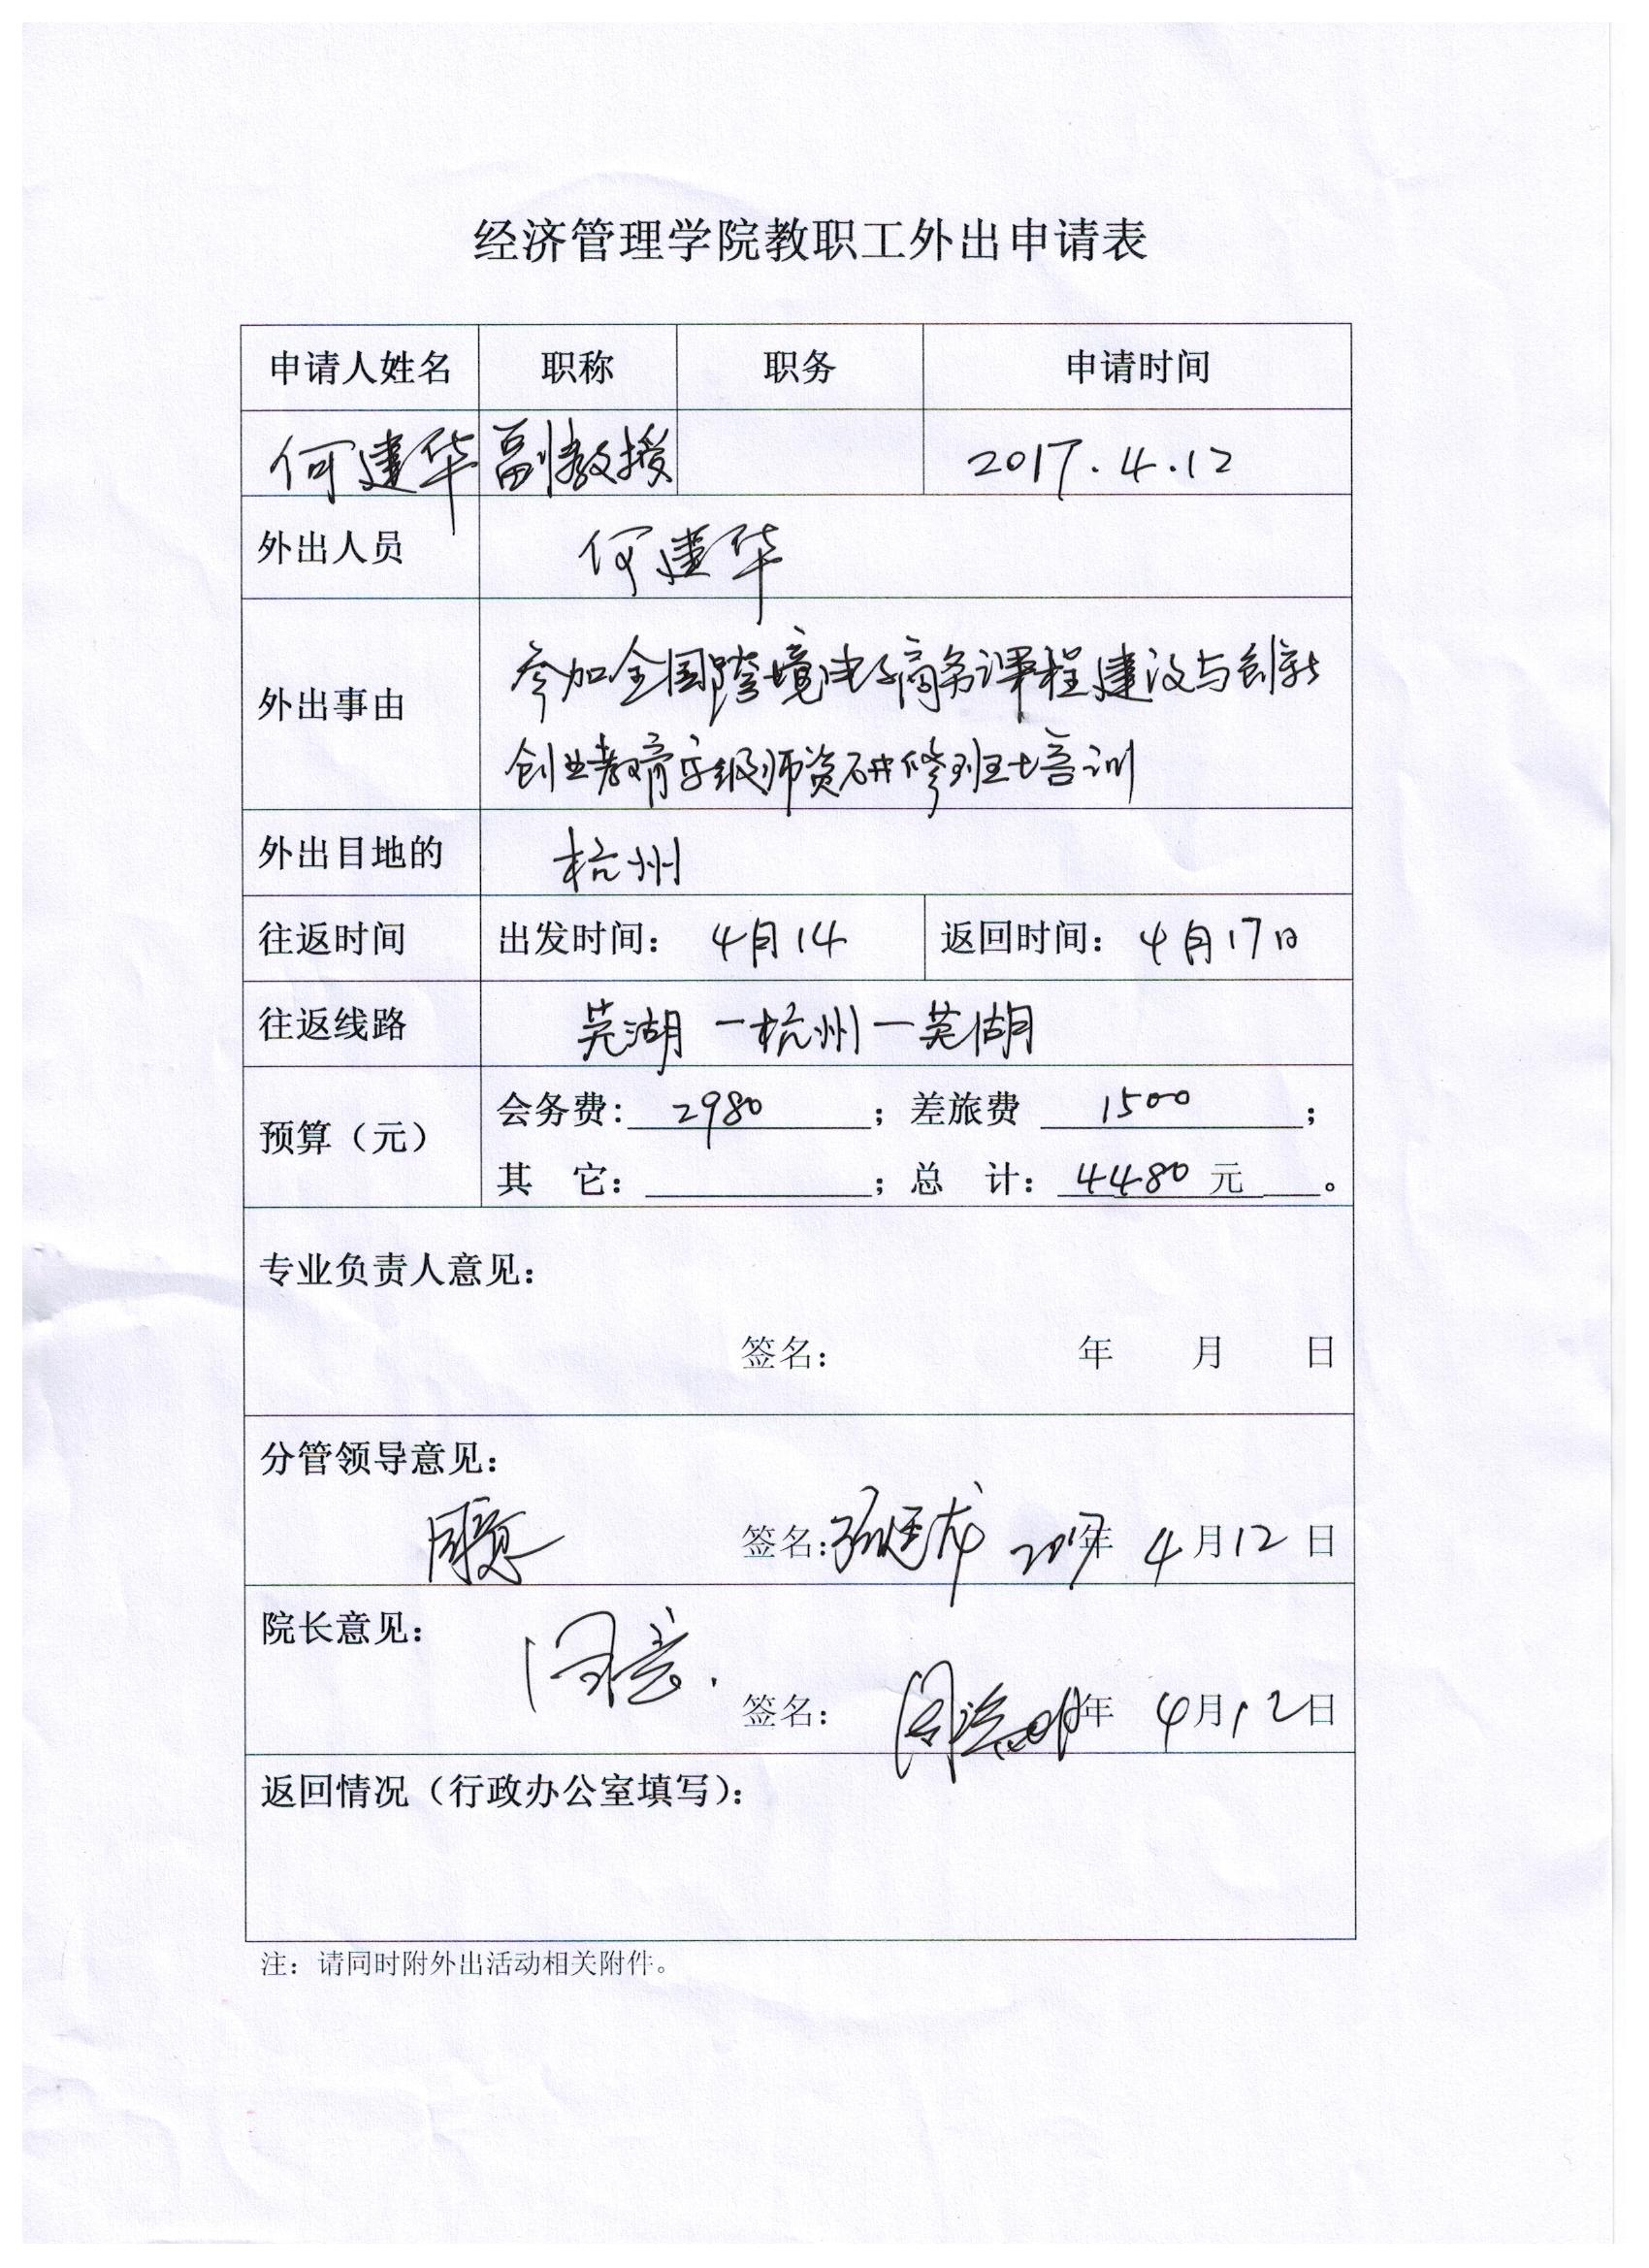 经济管理学院教职工外出申请表
申请人姓名 职称 职务 申请时间
何建华 副教授 2017.4.12
外出人员 何建华
外出事由 参加全国跨境电子商务课程建设与创新
创业教育高级师资研修班培训
外出目地的 杭州
往返时间 出发时间： 4月14 返回时间： 4月17日
往返线路 芜湖－杭州－芜湖
预算（元） 会务费： 2980 ；差旅费 1500 ；
其 它： ；总 计： 4480 元 。
专业负责人意见：
签名： 年 月 日
分管领导意见：
同意 签名： 2017年 4月12日
院长意见：
同意. 签名： 年 4月12日
返回情况（行政办公室填写）：
注：请同时附外出活动相关附件。